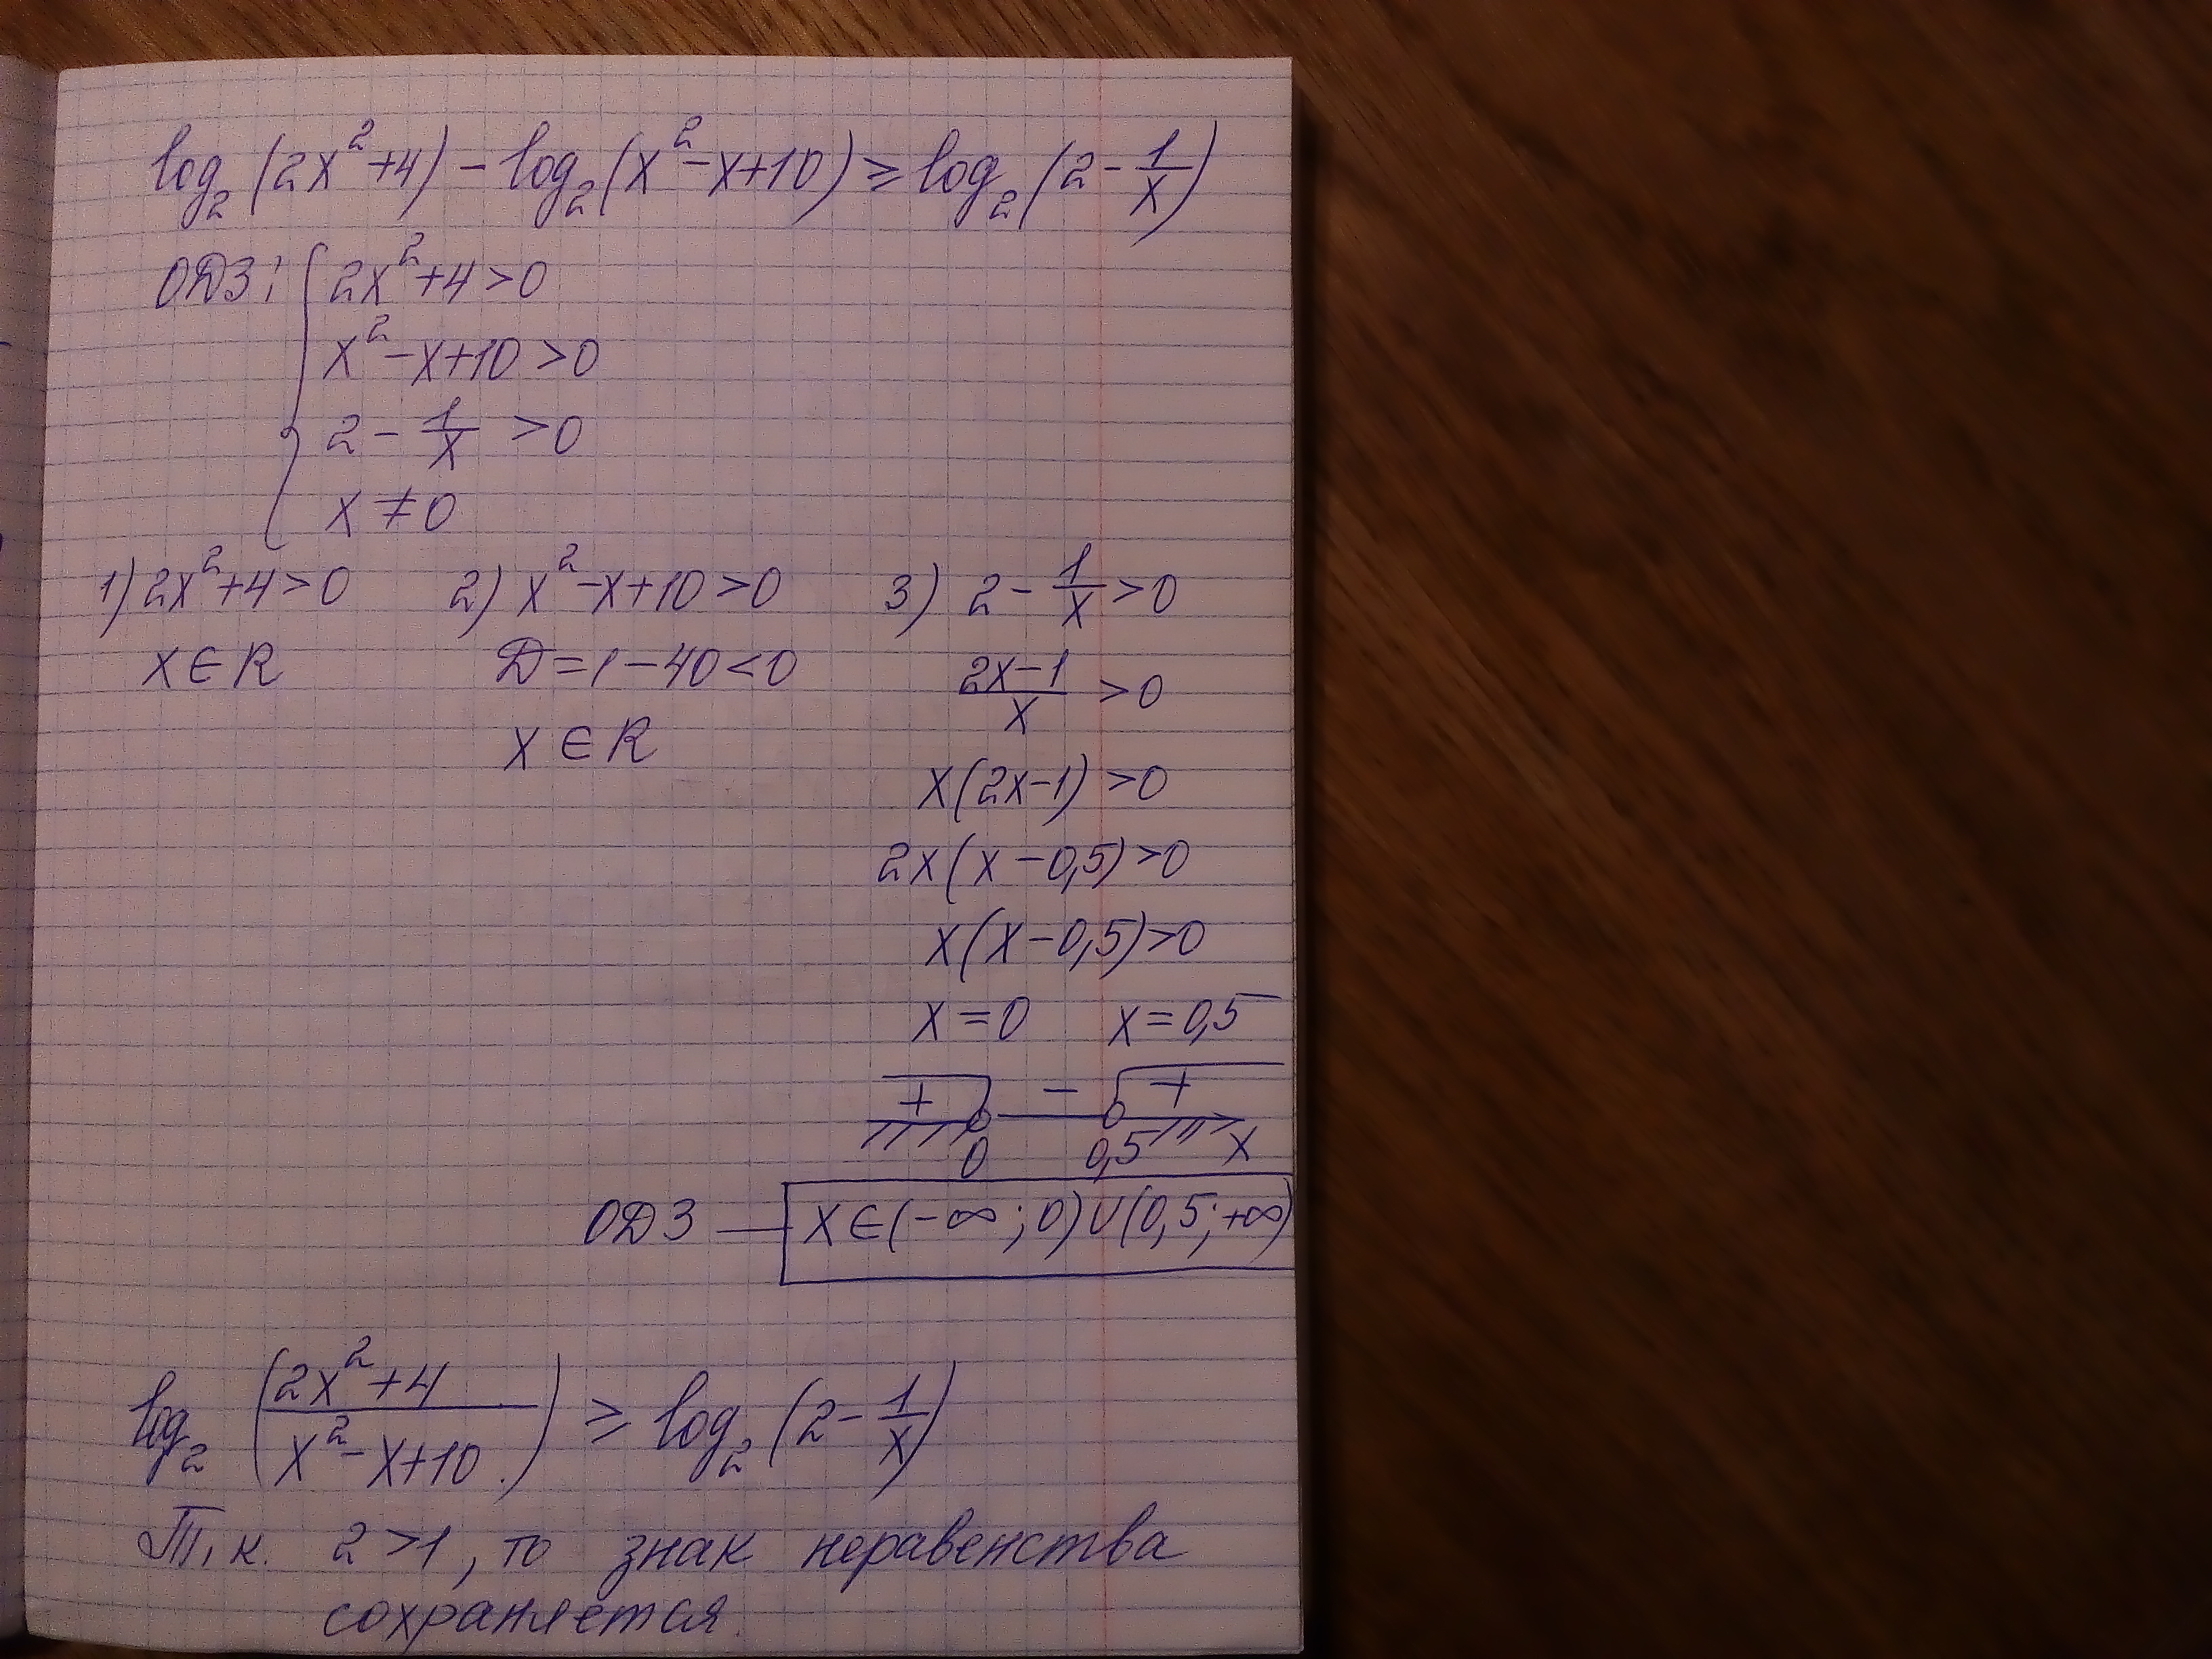 log₂(2x²+4) − log₂(x²−x+10) ≥ log₂(2 − 1/x)
ОДЗ: { 2x²+4>0
x²−x+10>0
2 − 1/x >0
x ≠ 0
1) 2x²+4>0 2) x²−x+10>0 3) 2 − 1/x >0
x ∈ R D=1−40<0 (2x−1)/x >0
x ∈ R
x(2x−1)>0
2x(x−0,5)>0
x(x−0,5)>0
x=0 x=0,5
+ − +
0 0,5 x
ОДЗ — x∈(−∞;0)∪(0,5;+∞)
log₂((2x²+4)/(x²−x+10)) ≥ log₂(2 − 1/x)
Т.к. 2>1, то знак неравенства
сохраняется.